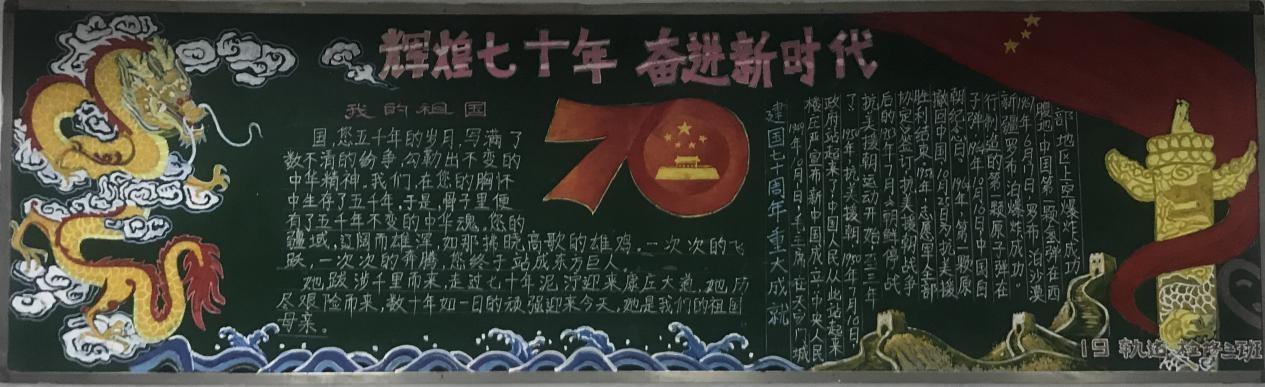 辉煌七十年 奋进新时代
我的祖国
国,您五千年的岁月,写满了
数不清的纷争,勾勒出不变的
中华精神。我们,在您的胸怀
中生存了五千年,于是,骨子里便
有了五千年不变的中华魂。您的
疆域,辽阔而雄浑,如那拂晓高歌的雄鸡。一次次的飞
跃,一次次的奔腾,您终于站成东方巨人。
她跋涉千里而来,走过七十年泥泞迎来康庄大道,她历
尽艰险而来,数十年如一日的顽强迎来今天,她是我们的祖国
母亲。
70
建国七十周年重大成就
1949年10月1日,毛主席在天安门城
楼庄严宣布新中国成立,中央人民
政府站起来了,中国人民从此站起来
了
抗美援朝运动开始,不三年
后的1953年7月27日朝鲜停战
协定签订,抗美援朝战争
胜利结束,1958年,志愿军全部
撤回中国,10月25日为抗美援
朝纪念日。1964年,第一颗原
子弹,1964年10月16日中国自
行制造的第一颗原子弹在
新疆罗布泊爆炸成功。
腹地,中国第一颗氢弹在西
部地区上空爆炸成功
19 轨道 检修三班